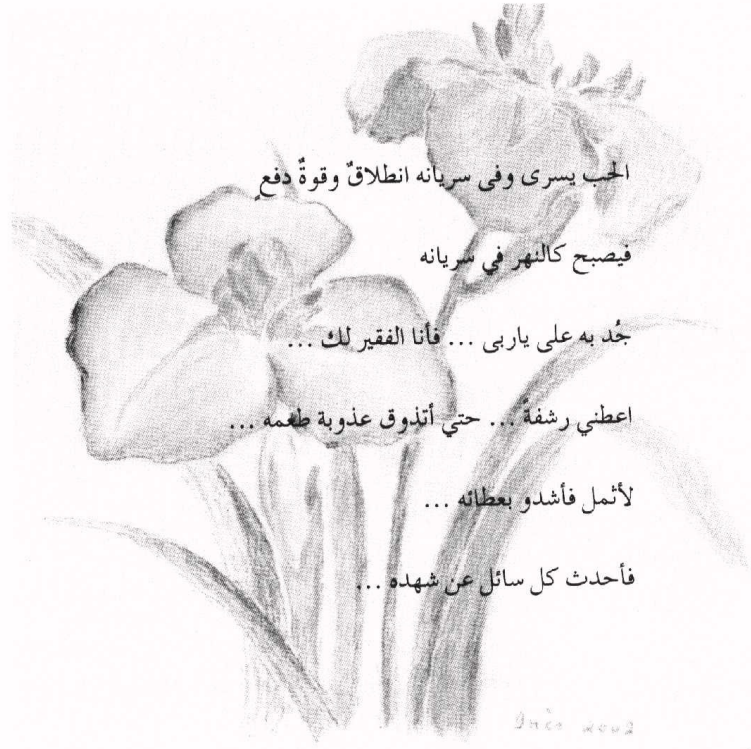 الحب يسرى وفى سريانه انطلاقٌ وقوةٌ دفعٍ
فيصبح كالنهر في سريانه
جُد به على ياربى ... فأنا الفقير لك ...
اعطني رشفةً ... حتي أتذوق عذوبة طعمه ...
لأثمل فأشدو بعطائه ...
فأحدث كل سائل عن شهده ...
2002